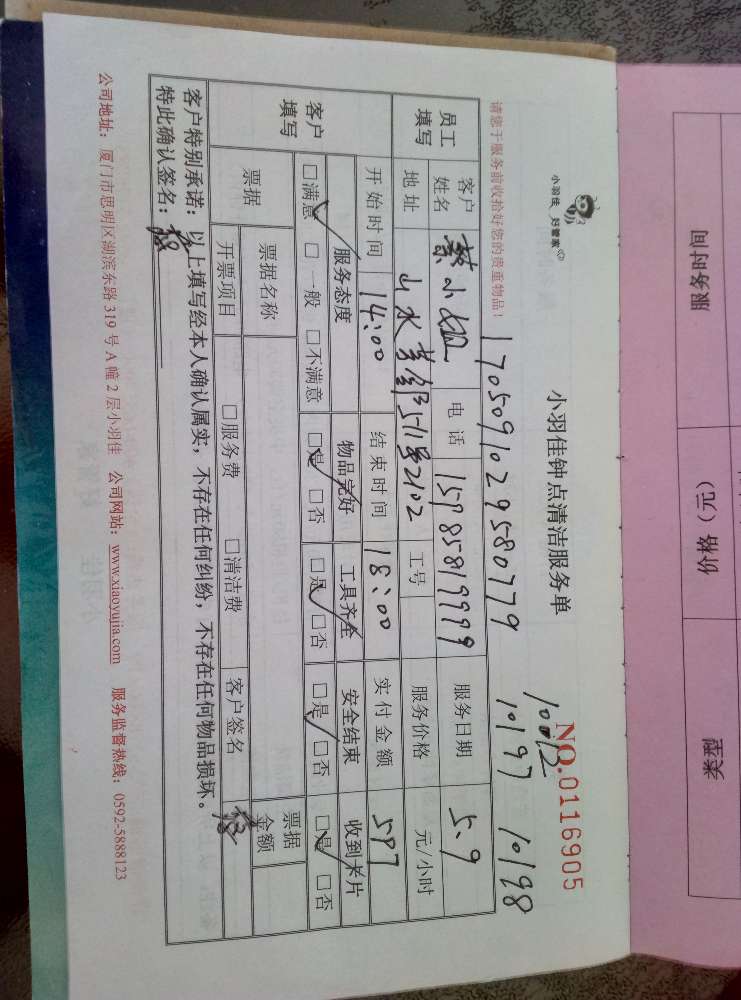 小羽佳 好管家
小羽佳钟点清洁服务单
NO.0116905
10012
请您于服务前收拾好您的贵重物品！
1705091029580779 10197 10198
员工填写 客户姓名 蔡小姐 电话 15985819999 服务日期 5.9
地址 山水芳邻511号2102 工号 服务价格 元/小时
开始时间 14:00 结束时间 18:00 实付金额 597
客户填写 服务态度 物品完好 工具齐全 安全结束 收到卡片
□满意 □一般 □不满意 □是 □否 □是 □否 □是 □否 □是 □否
票据 票据名称 票据金额
开票项目 □服务费 □清洁费 客户签名
客户特别承诺：以上填写经本人确认属实，不存在任何纠纷，不存在任何物品损坏。
特此确认签名：
公司地址：厦门市思明区湖滨东路 319 号 A 幢 2 层小羽佳 公司网站：www.xiaoyujia.com 服务监督热线：0592-5888123
服务时间 价格（元） 类型